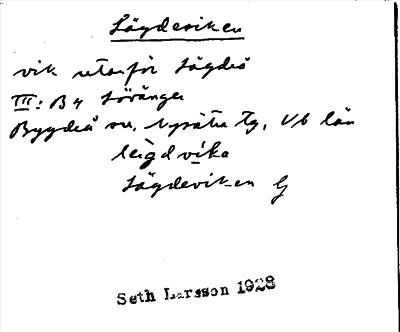 Lägdeviken
vik utanför Lägdeå
III: B4 Lövånger
Bygdeå sn, Nysätra tg, V/b län
leigdvika
Lägdeviken G
Seth Larsson 1928